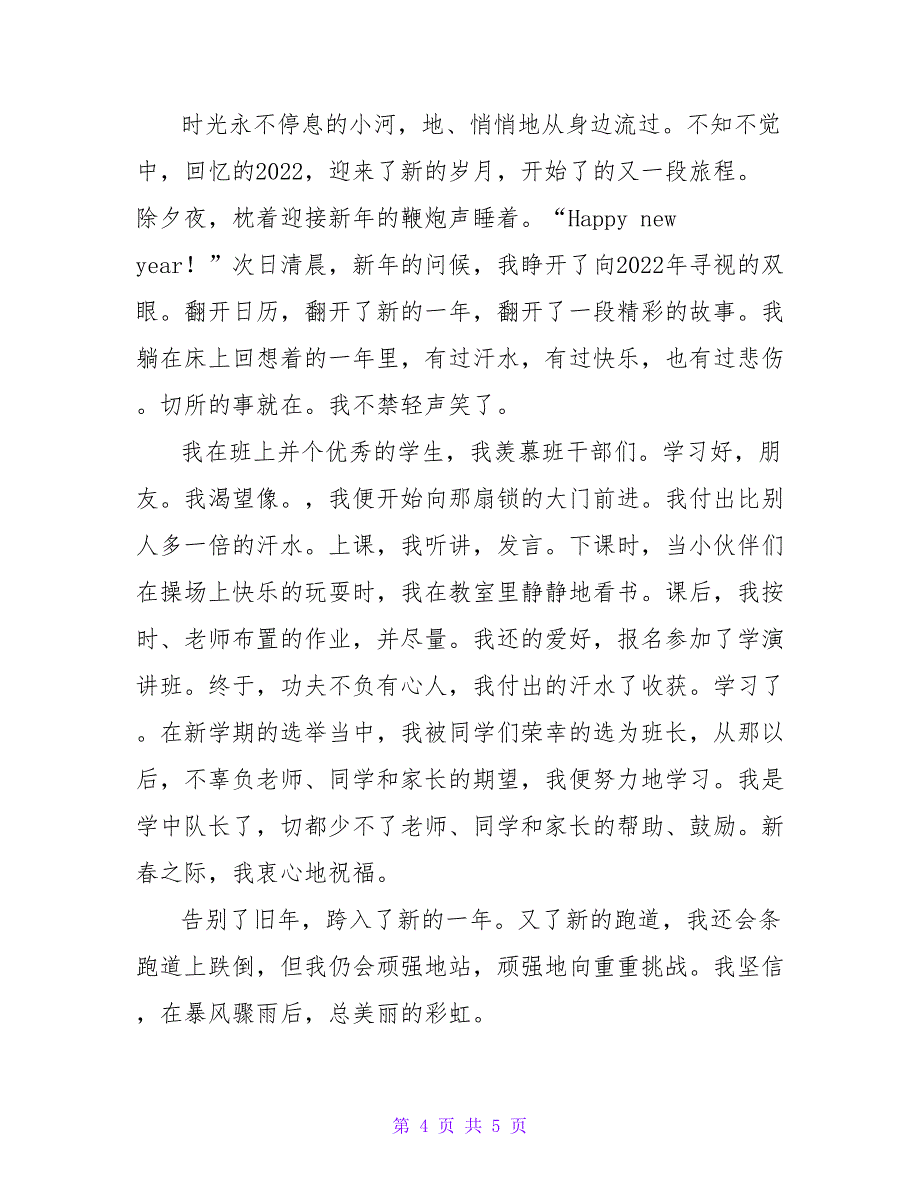 时光永不停息的小河，地、悄悄地从身边流过。不知不觉
中，回忆的2022，迎来了新的岁月，开始了的又一段旅程。
除夕夜，枕着迎接新年的鞭炮声睡着。“Happy new
year！”次日清晨，新年的问候，我睁开了向2022年寻视的双
眼。翻开日历，翻开了新的一年，翻开了一段精彩的故事。我
躺在床上回想着的一年里，有过汗水，有过快乐，也有过悲伤
。切所的事就在。我不禁轻声笑了。
我在班上并个优秀的学生，我羡慕班干部们。学习好，朋
友。我渴望像。，我便开始向那扇锁的大门前进。我付出比别
人多一倍的汗水。上课，我听讲，发言。下课时，当小伙伴们
在操场上快乐的玩耍时，我在教室里静静地看书。课后，我按
时、老师布置的作业，并尽量。我还的爱好，报名参加了学演
讲班。终于，功夫不负有心人，我付出的汗水了收获。学习了
。在新学期的选举当中，我被同学们荣幸的选为班长，从那以
后，不辜负老师、同学和家长的期望，我便努力地学习。我是
学中队长了，切都少不了老师、同学和家长的帮助、鼓励。新
春之际，我衷心地祝福。
告别了旧年，跨入了新的一年。又了新的跑道，我还会条
跑道上跌倒，但我仍会顽强地站，顽强地向重重挑战。我坚信
，在暴风骤雨后，总美丽的彩虹。
第 4 页 共 5 页